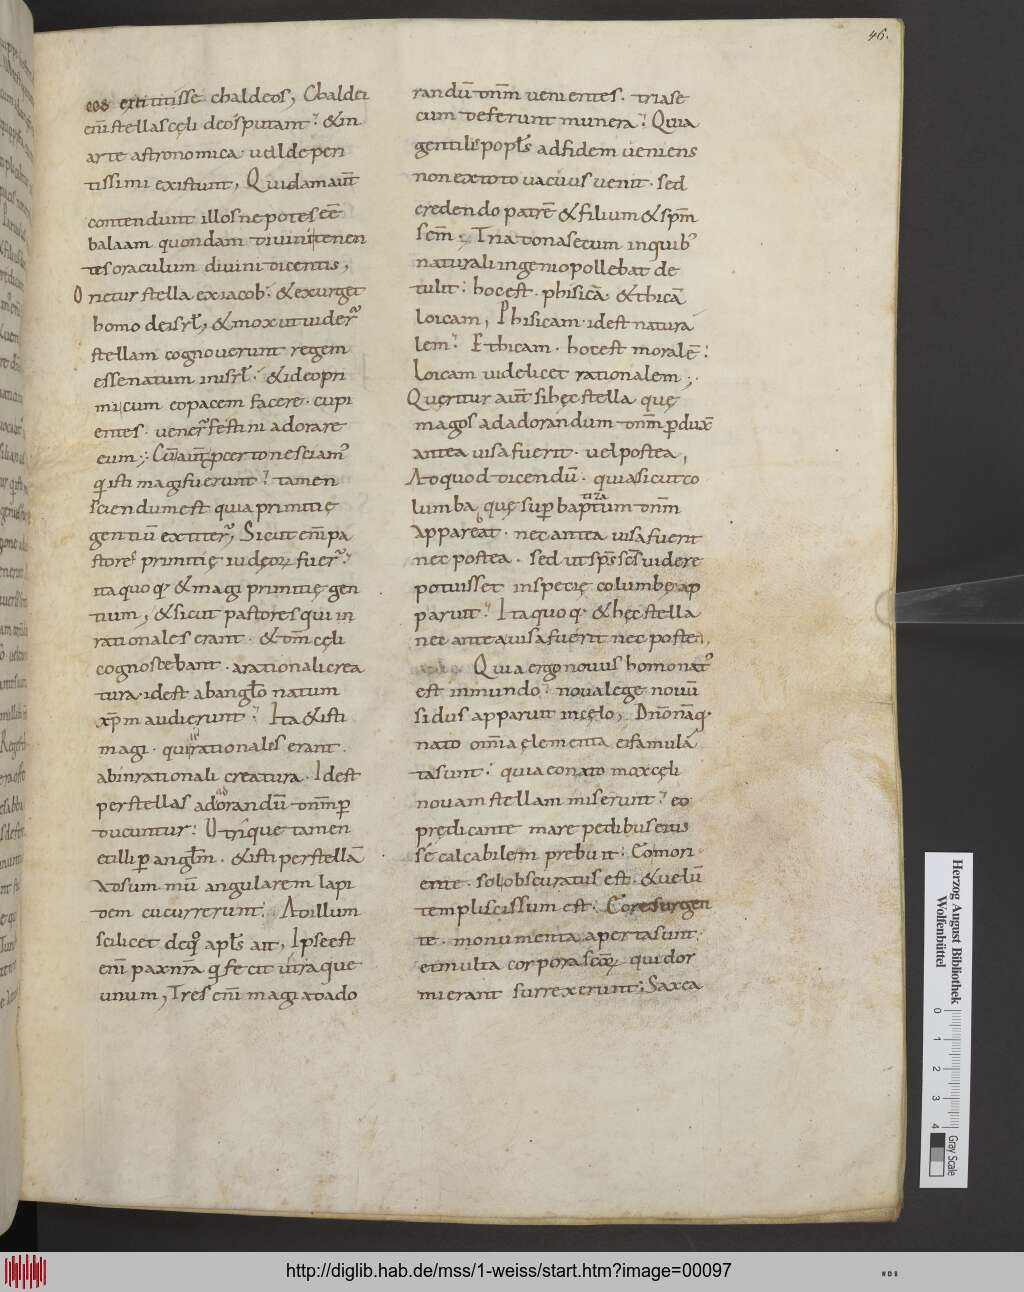 46.
eos extitisse chaldeos, Chaldei
eni̅ stellas cęli deos putant. &in
arte astronomica ualde peri
tissimi existunt, Quidam aut̅
contendunt illos nepotes ee̅
balaam quondam diuini tenen
tes oraculum diuini dicentis,
Orietur stella ex iacob: & exurget
homo de isrl̅, & mox ut uider̅
stellam cognouerunt regem
esse natum in isrl̅. & ideo pri
mi cum eo pacem facere. cupi
entes. uener̅ festini adorare
eum; Cu̅ aut̅ ꝓ certo nesciam᾽
q̇ isti magi fuerunt? tamen
sciendum est quia primitię
gentiu̅ extiter̅, Sicut eni̅ pa
stores primitię iudęoꝝ fuer̅.
ita quoq· & magi primitię gen
tium, & sicut pastores qui in
rationales erant. & dm̅ cęli
cognoscebant. a rationali crea
tura. idest ab anglo̅ natum
xp̅m audierunt? Ita & isti
magi. qui irrationales erant.
ab inrationali creatura. Idest
per stellas ad adorandu̅ dnm̅ ꝑ
ducuntur: Utrique tamen
et illi ꝑ anglm̅. & isti per stella̅
ad sum mu̅ angularem lapi
dem cucurrerunt. Ad illum
scilicet de q᾽ apl̅s ait, Ipse est
eni̅ pax nr̅a q̇ fecit utraque
unum, Tres eni̅ magi ad ado
randu̅ dnm̅ uenientes. trias e
cum deferunt munera? Quia
gentilis popl̅s ad fidem ueniens
non ex toto uacuus uenit. sed
credendo patre̅ & filium & spm̅
scm̅. Tria dona secum in quib᾽
naturali ingenio pollebat de
tulit: hoc est. phisica̅. & thica̅
loicam, Phisicam. idest natura
lem? Ethicam. hoc est morale̅:
Loicam uidelicet rationalem;
Queritur aut̅ si hęc stella quę
magos ad adorandum dnm̅ ꝑdux̅
antea uisa fuerit. uel postea,
Ad quod dicendu̅. quia sicut co
lumba quę suꝑ baptizatum dnm̅
apparebat. nec antea uisa fuerit
nec postea. sed ut sps̅ scs̅ uidere
potuisset in specię columbę ap
paruit? Ita quoq· & hęc stella
nec antea uisa fuerit nec postea,
Quia ergo nouus homo nat᾽
est in mundo? noua lege nouu̅
sidus apparuit in cęlo, Dno̅ na̅q·
nato om̅ia elementa ei famula̅
ta sunt: quia eo nato mox cęli
nouam stellam miserunt? eo
prędicante mare pedibus eius
se̅ calcabilem prebuit: Eo mori
ente. sol obscuratus est. & uelu̅
templi scissum est. Eo resurgen
te. monumenta aperta sunt.
et multa corpora sco̅ꝝ qui dor
mierant surrexerunt; Saxea
Herzog August Bibliothek
Wolfenbüttel
0 1 2 3 4
Gray Scale
http://diglib.hab.de/mss/1-weiss/start.htm?image=00097